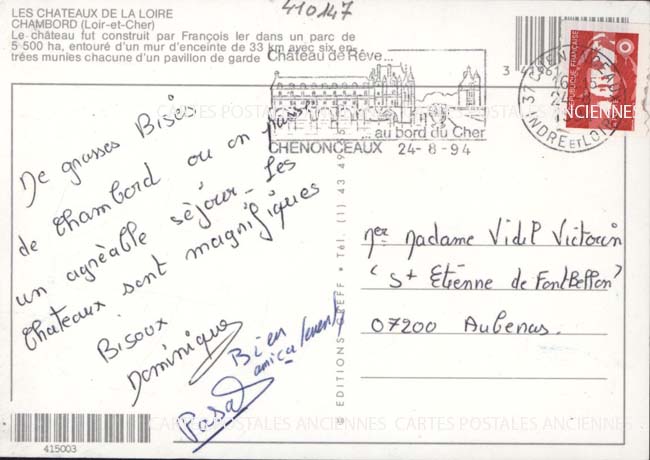 LES CHATEAUX DE LA LOIRE
CHAMBORD (Loir-et-Cher)
Le château fut construit par François Ier dans un parc de
5 500 ha, entouré d'un mur d'enceinte de 33 km avec six en-
trées munies chacune d'un pavillon de garde
410147
Château de Rêve...
... au bord du Cher
CHENONCEAUX 24-8-94
37
INDRE ET LOIRE
De grosses Bises
de Chambord ou on passe
un agréable séjour. Les
Chateaux sont magnifiques
Bisoux
Dominique
Bien
amicalement
Pascal
Mer Madame Vidil Victorin
"St Etienne de FontBellon"
07200 Aubenas.
© EDITIONS
Tél. (1) 43 49
415003
CARTES POSTALES ANCIENNES
CARTES POSTALES ANCIENNES